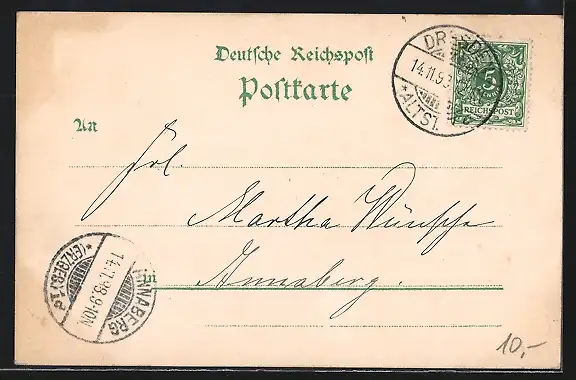 Deutsche Reichspost
Postkarte
DRESDEN
14.11.9
* ALTST.
5
REICHSPOST
An
Frl.
Martha Wünsche
in
Annaberg.
ANNABERG
14.11.98.9-10N
*(ERZGEB.)
10,-